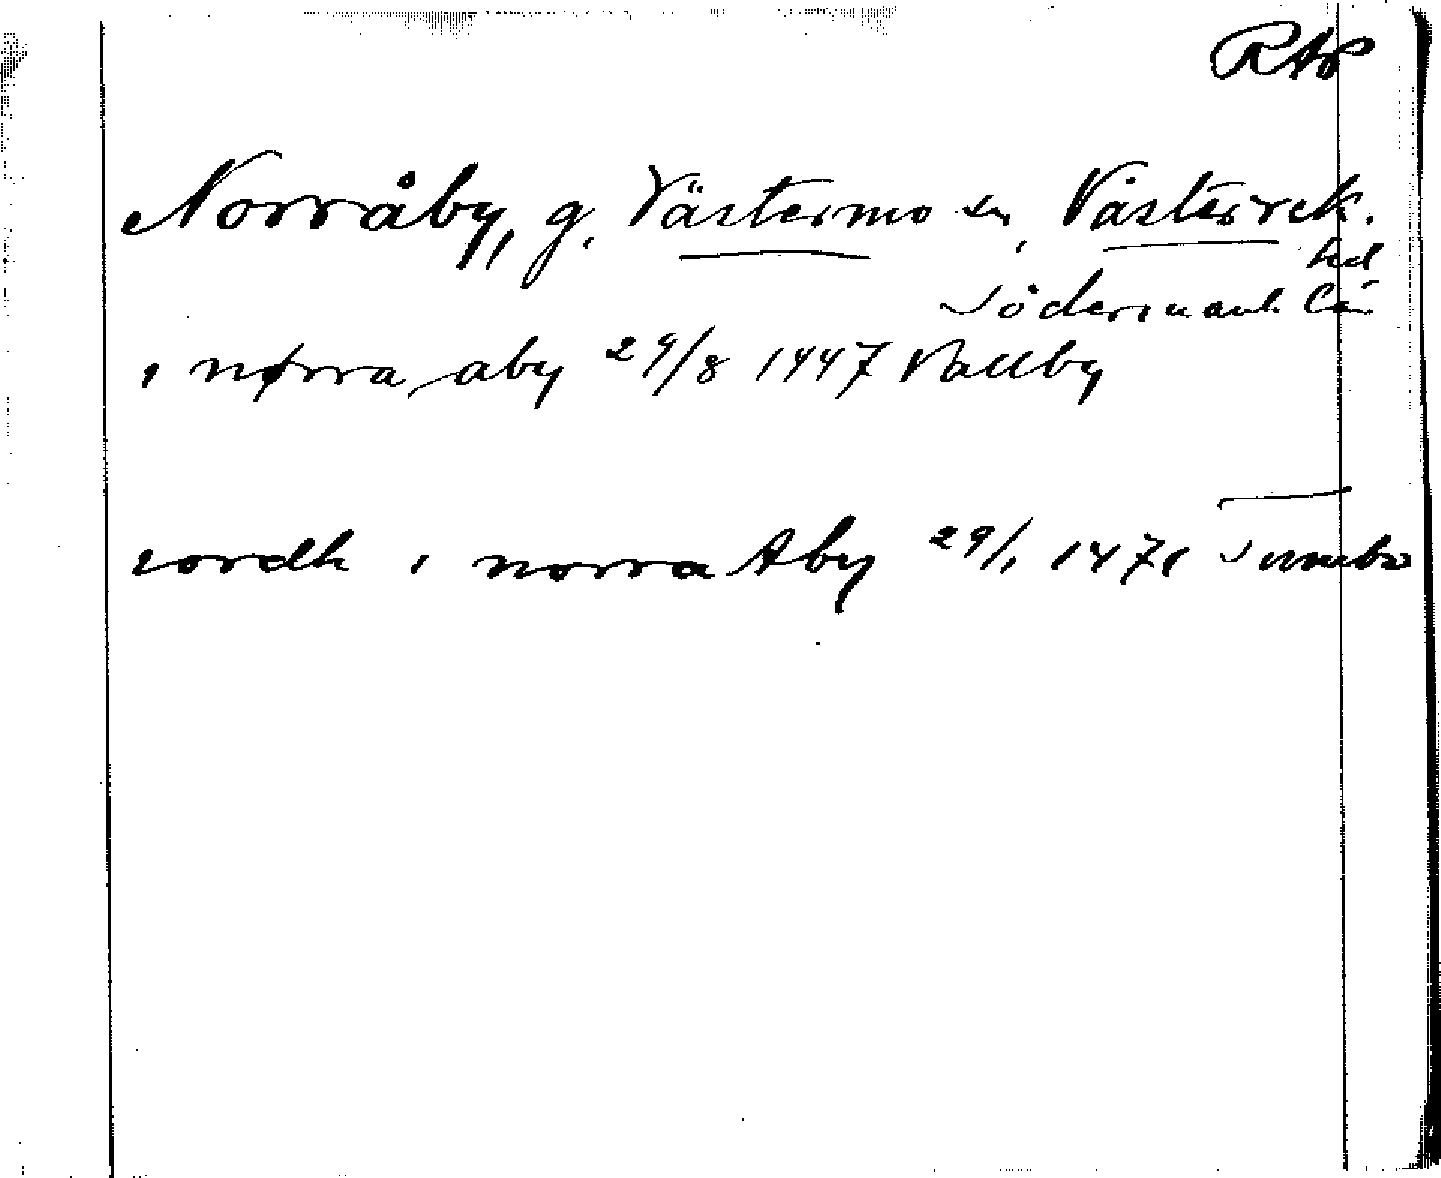 RAP
Norråby, g. Västermo sn, Västerrek.
hd
Södermanl. län
i nørra aby 29/8 1447 Vallby
iordh i norra Aby 29/1 1471 Tumbo